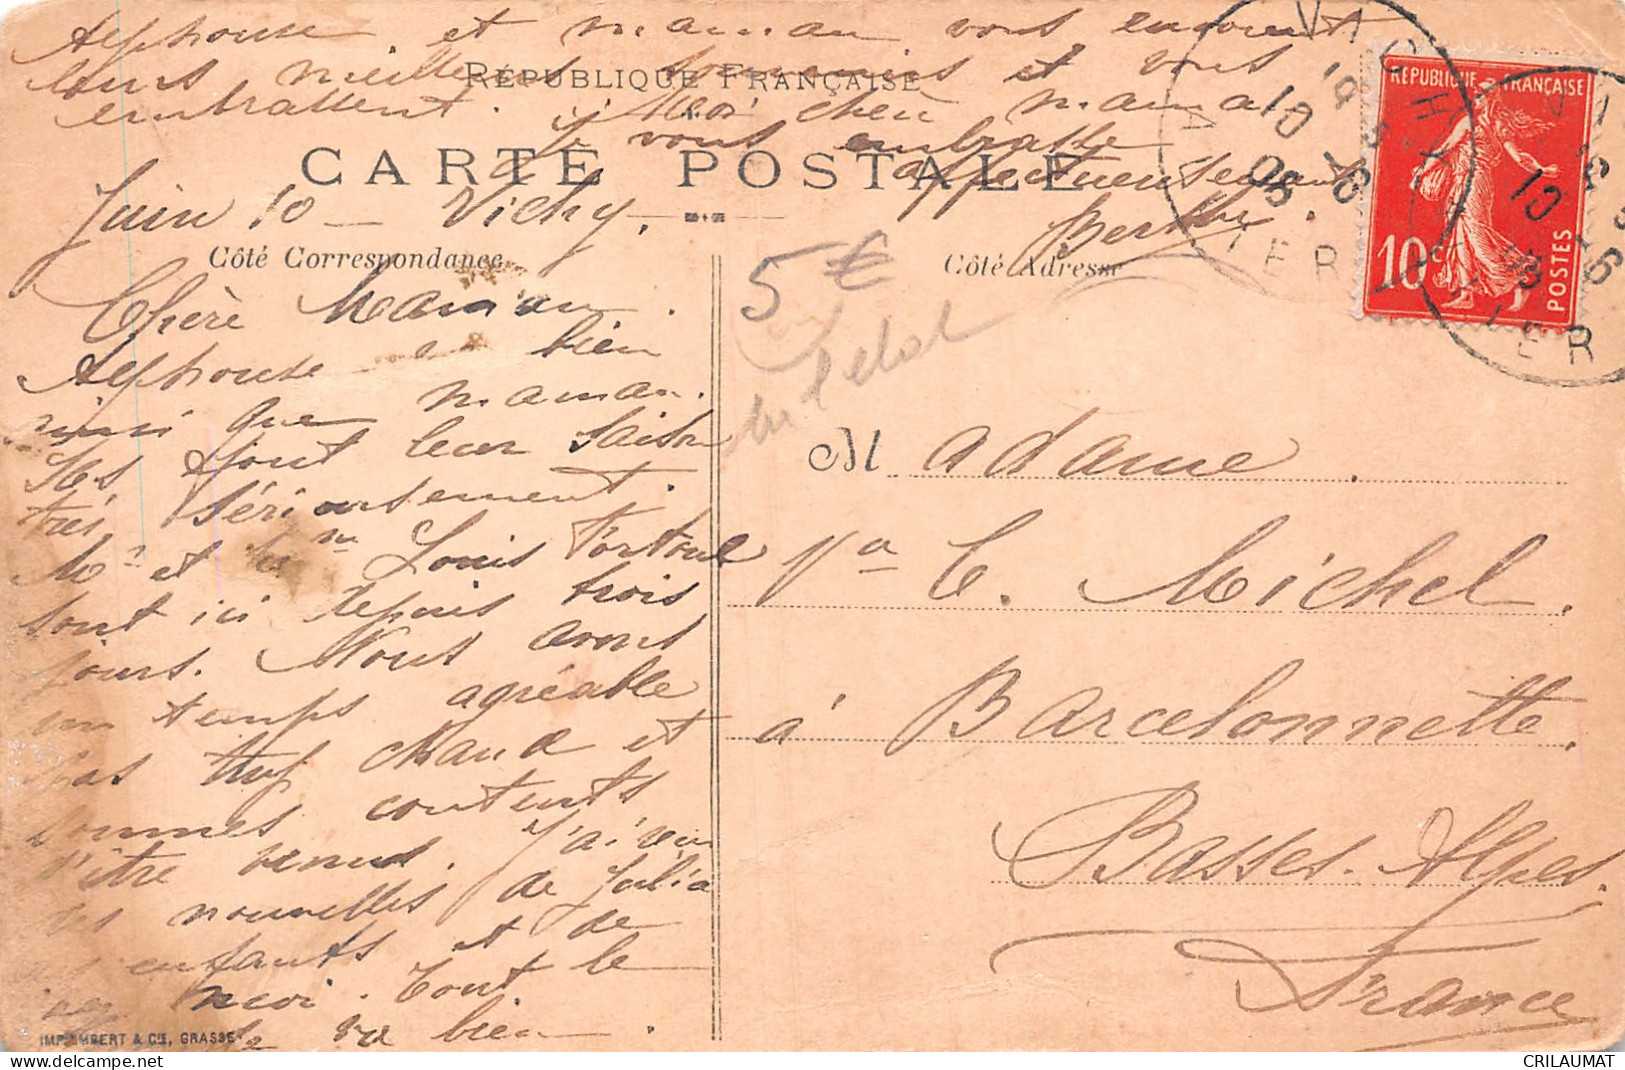 Alphonse et maman vous envoient
leurs meilleurs souvenirs et vous
embrassent. Moi chère mama
je vous embrasse
affectueusement.
Berthe
RÉPUBLIQUE FRANÇAISE
CARTE POSTALE
Côté Correspondance
Côté Adresse
Juin 10 - Vichy.
Chère Maman.
Alphonse bien
ainsi que maman.
Ils font leur saison
très sérieusement.
Mr et Mme Louis Tortoul
sont ici depuis trois
jours. Nous avons
un temps agréable
pas trop chaud et
sommes contents
d'être venus. J'ai eu
des nouvelles de Julia
enfants et de
moi. Tout le
va bien.
IMP. IMBERT & CIE, GRASSE
5 €
RÉPUBLIQUE FRANÇAISE
10c
POSTES
VICHY
ALLIER
10-6
08
Madame.
Va C. Michel.
à Barcelonnette.
Basses-Alpes.
France
CRILAUMAT